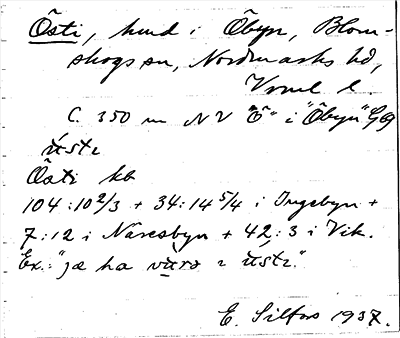 Östi, hund i Öbyn, Blom-
skogs sn, Nordmarks hd,
Vrml l.
C. 350 m NV "Ö" i "Öbyn" GG
ústɩ
Östi kb
104:10 2/3 + 34:14 5/4 i Ingebyn +
7:12 i Naresbyn + 42:3 i Vik.
Ex.: "jæ ha vɑrə ɩ ústɩ".
E. Silfors 1937.